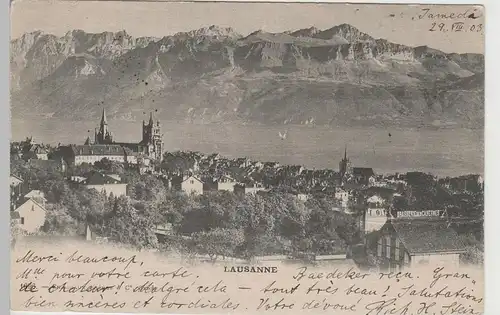 Samedi
29. VIII. 03
BRASSERIE DU CARDINAL
LAUSANNE
Merci beaucoup! Baedeker reçu.
Mde pour votre carte.
de chaleur! Malgré cela — tout très beau! Salutations
bien sincères et cordiales. Votre dévoué